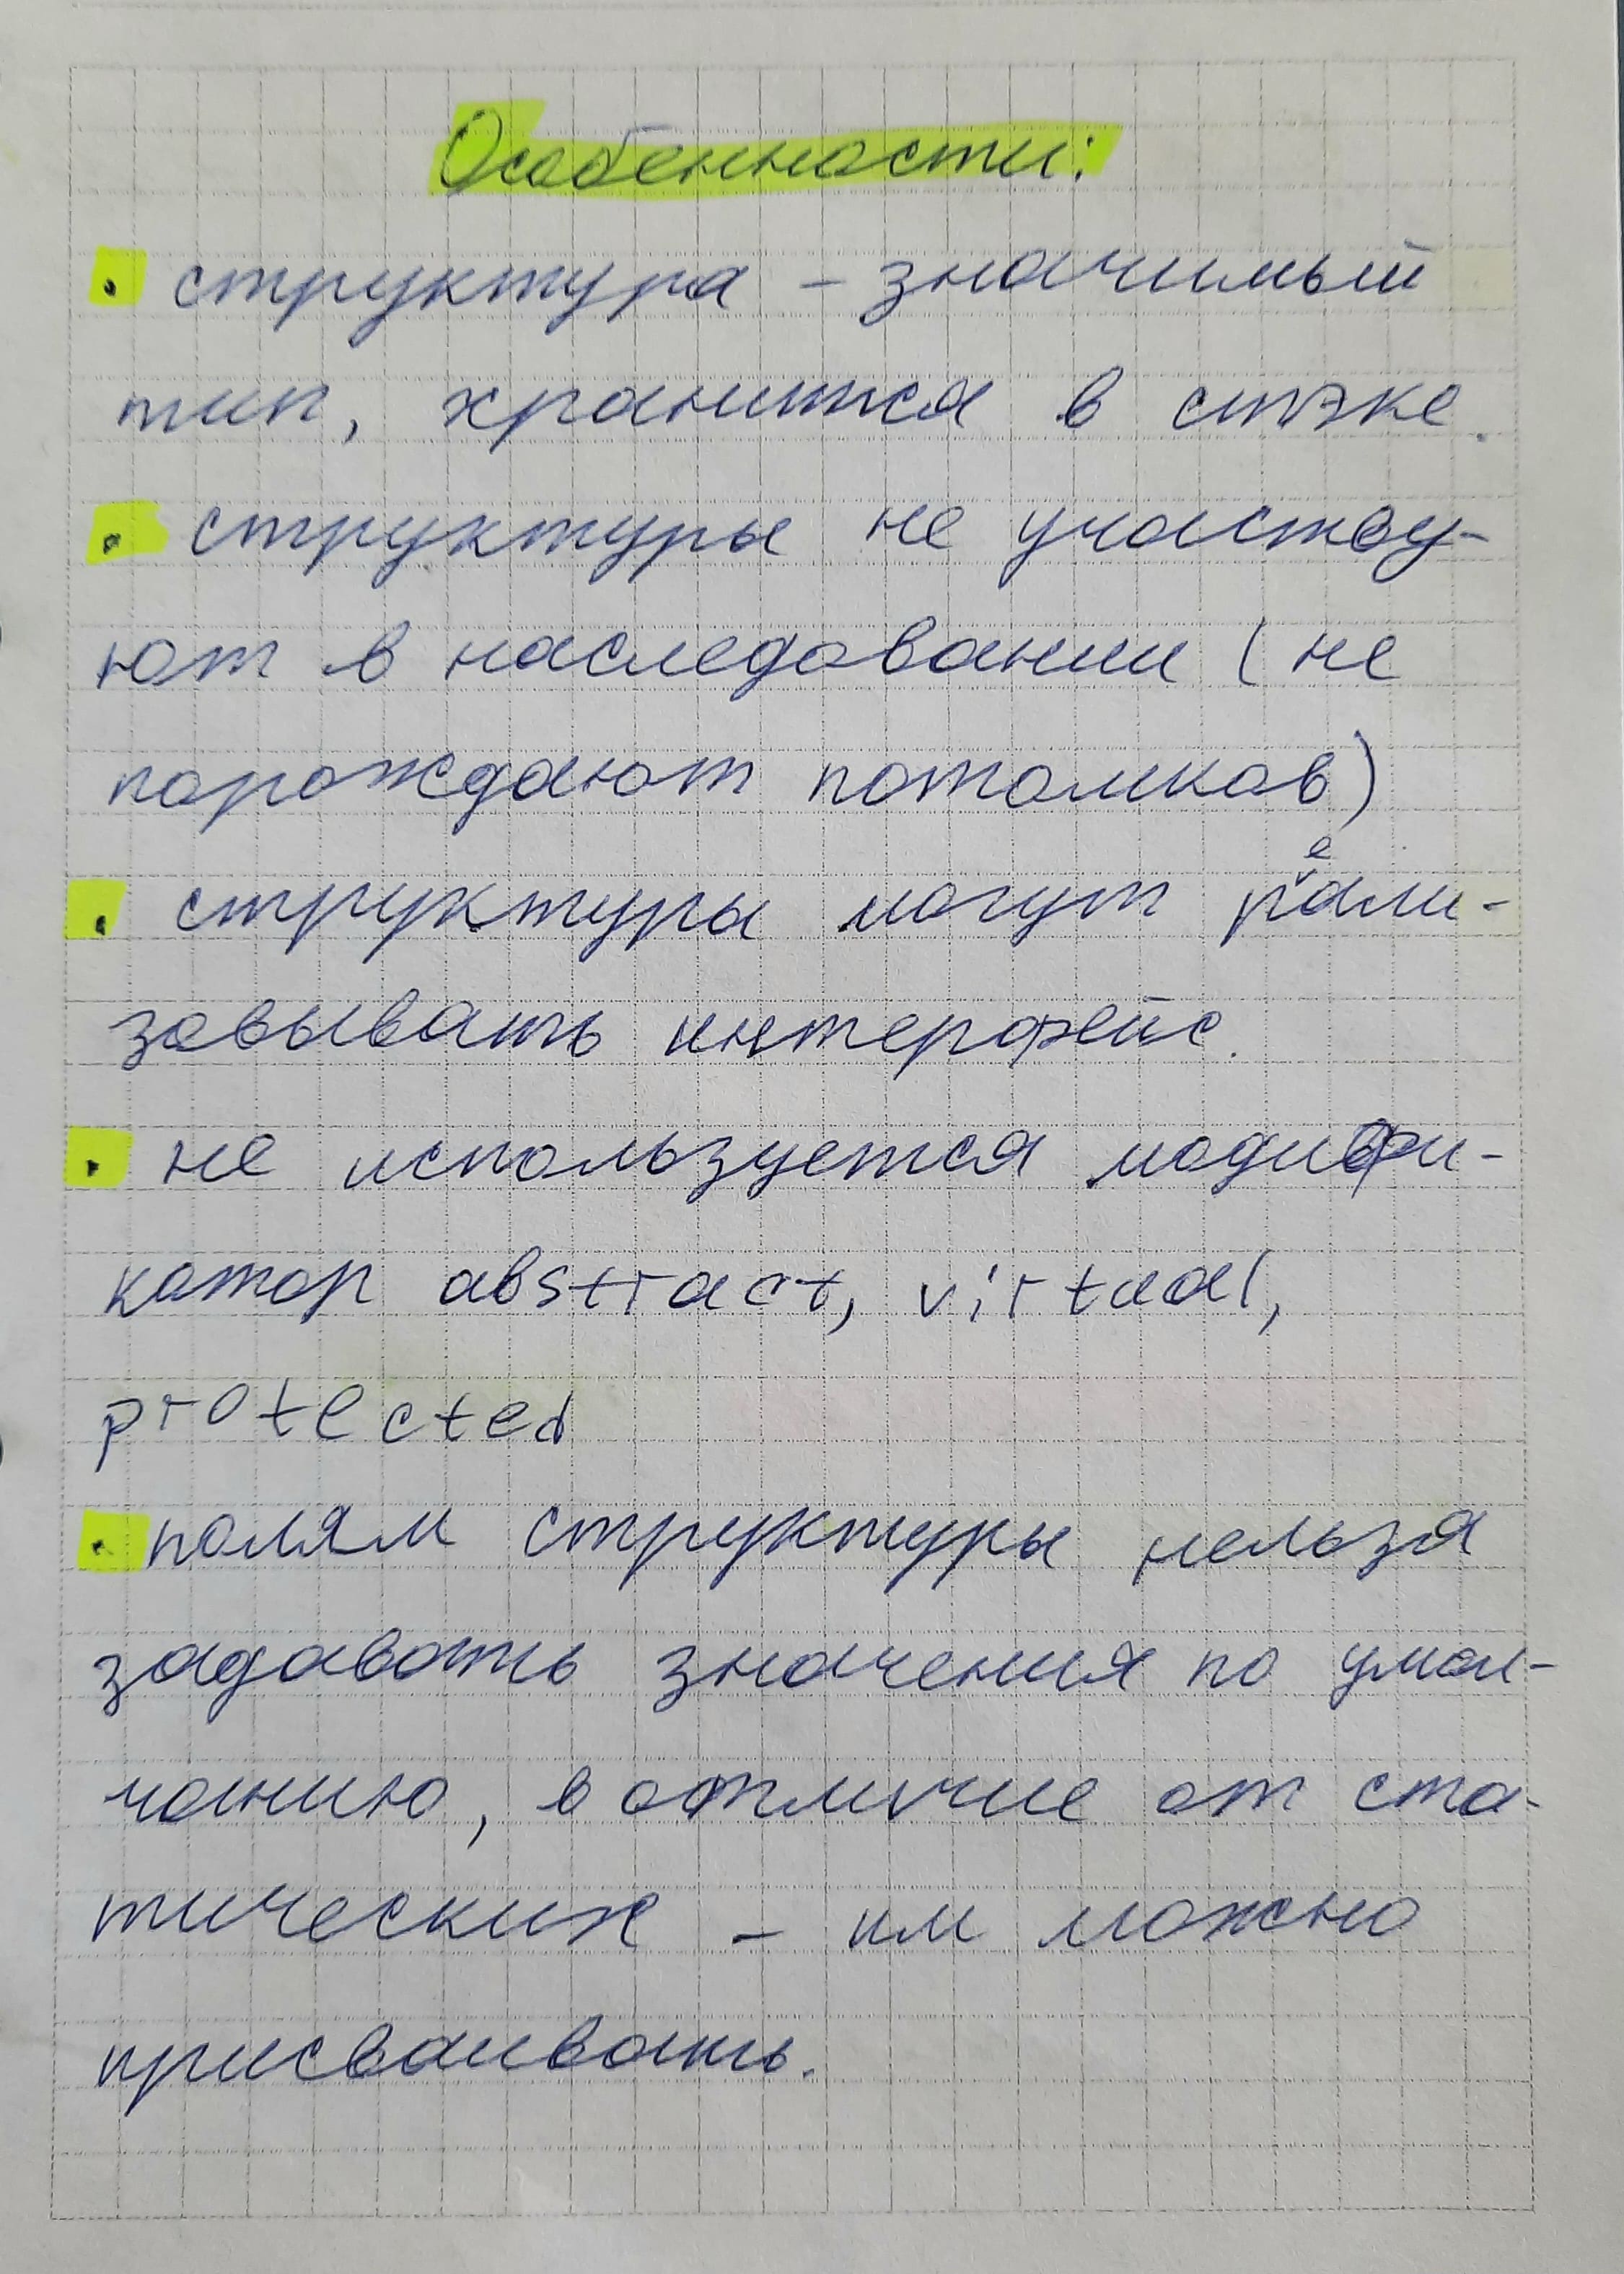 Особенности:
• структура – значимый
тип, хранится в стэке.
• структуры не участву-
ют в наследовании (не
порождают потомков)
• структуры могут реали-
зовывать интерфейс.
• не используется модифи-
катор abstract, virtual,
protected
• полям структуры нельзя
задавать значения по умол-
чанию, в отличие от ста-
тических – им можно
присваивать.